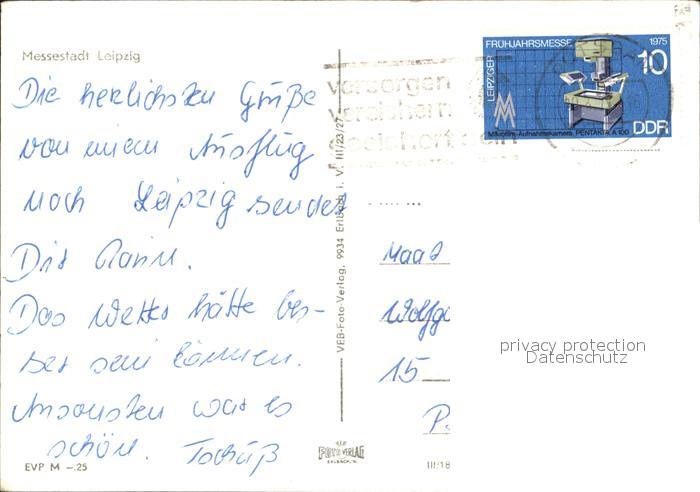 Messestadt Leipzig
Die herzlichsten Grüße
von einem Ausflug
nach Leipzig sendet
Dir
Das Wetter hätte bes-
ser sein können.
Ansonsten war es
schön. Tschüß
EVP M –.25
VEB-Foto-Verlag, 9934 Erlbach i. V. III/23/27
FOTO VERLAG
ERLBACH, V.
III/18
vorsorgen
versichern
gesichert sein
LEIPZIGER
FRÜHJAHRSMESSE 1975
10
Mikrofilm-Aufnahmekamera PENTAKTA A 100
DDR
Wolfg
15
P
privacy protection
Datenschutz